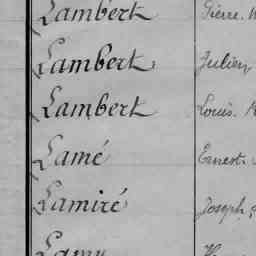 Lambert Pierre.
Lambert Julien
Lambert Louis.
Lamé Ernest.
Lamiré Joseph
Lamy